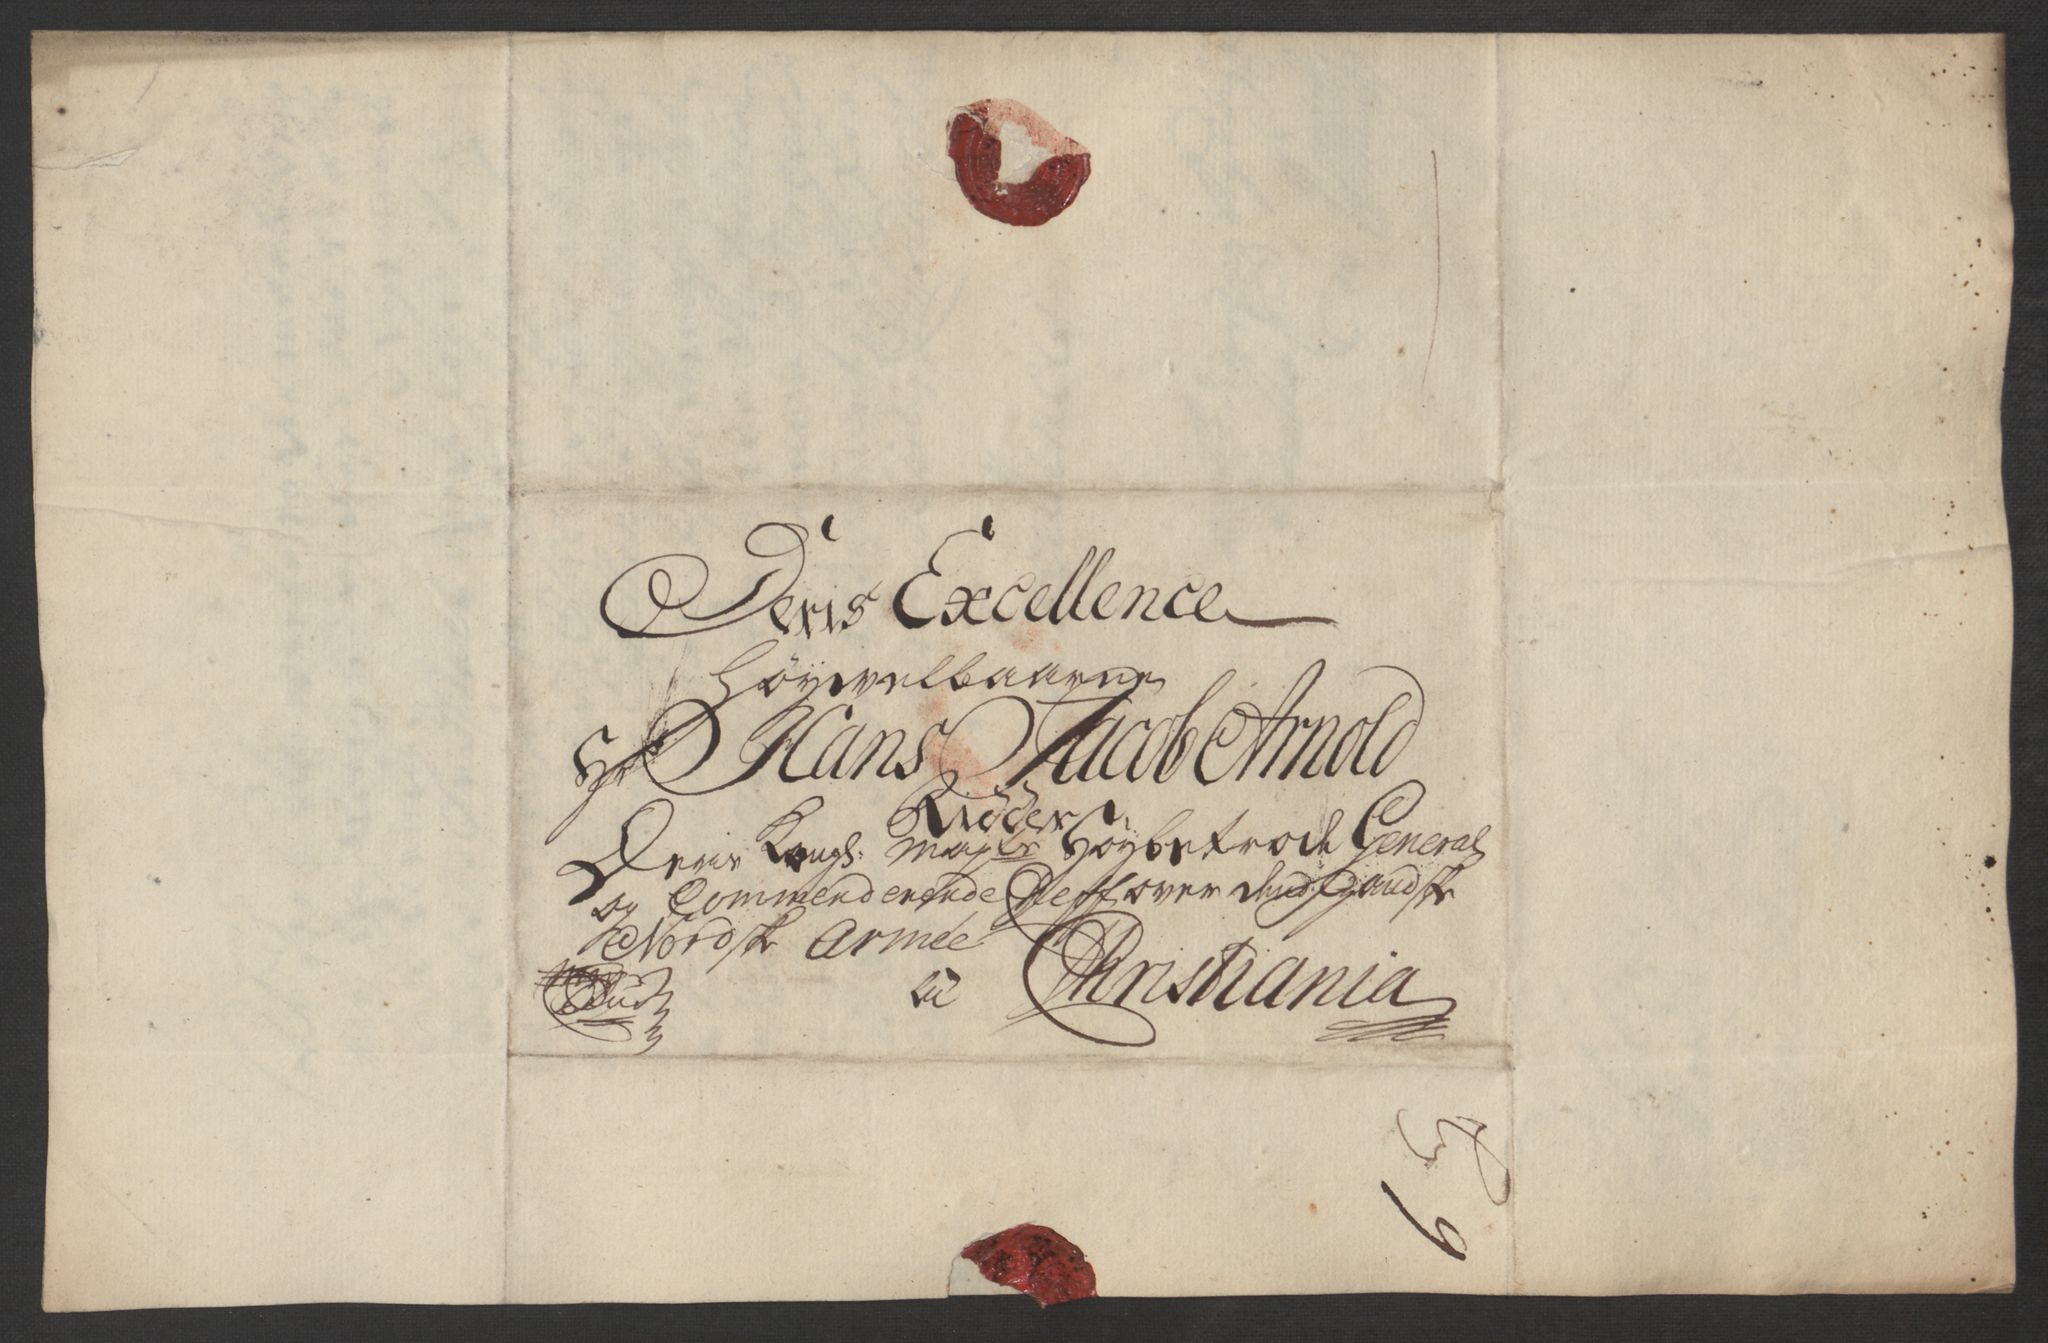 Deris Excellence
Høyvelbaarne
Hr. Hans Jacob Arnold
Ridder
Deris Kongl: Mayts Høybetrode General
og Commenderende Cheff over dend gandske
Nordske Armee
a Christiania